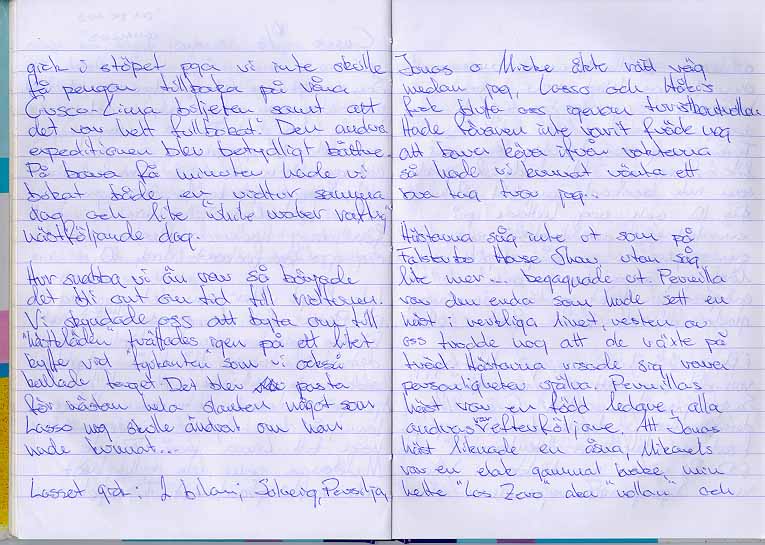 gick i stöpet pga vi inte skulle
få pengar tillbaka på våra
Cusco-Lima biljeter samt att
det var helt fullbokat. Den andra
expeditionen blev betydligt bättre.
På bara få minuter hade vi
bokat både en ridtur samma
dag och lite "white water rafting"
nästföljande dag.
Hur snabba vi än var så började
det bli ont om tid till ridturen.
Vi skyndade oss att byta om till
träffades igen på ett litet
som vi också
kallade torget. Det blev pasta
för nästan hela slanten något som
Lasso nog skulle ändrat om han
hade kunnat...
Lasset gick i 2 bilar, Solveig, Pernilla,
Jonas o Micke åkte rätt väg
medan jag, Lasso och
fick oss igenom
Hade inte varit nog
att bara köra ifrån vakterna
så hade vi kunnat vänta ett
bra tag tror jag...
Hästarna såg inte ut som på
Falsterbo Horse Show utan såg
lite mer... begagnade ut. Pernilla
var den enda som hade sett en
häst i verkliga livet, resten av
oss trodde nog att de växte på
träd. Hästarna visade sig vara
personligheter själva. Pernillas
häst var en född ledare, alla
andras var efterföljare. Att Jonas
häst liknade en åsna, Mikaels
var en elak gammal min
hette "Los Zero" aka "nollan" och